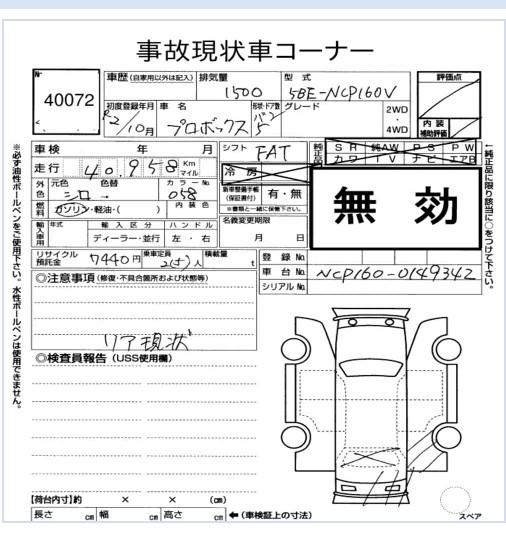 事故現状車コーナー
No 40072
車歴(自家用以外は記入) 排気量 1500 型式 5BE-NCP160V 評価点
初度登録年月 R2/10月 車名 プロボックス 形状・ドア数 バン 5 グレード 2WD・4WD 内装補助評価
車検 年 月 シフト FAT 純正品 SR 純AW PS PW
走行 40,958 Km マイル 冷房 カワ TV ナビ エアB
外色 元色 シロ→ 色替 カラーNo 058 新車整備手帳(保証書付) 有・無
燃料 ガソリン・軽油・( ) 内装色 ※書類と一緒に保管下さい。
無効
輸入車用 年式 輸入区分 ハンドル 名義変更期限
ディーラー・並行 左・右 月 日
リサイクル預託金 7440円 乗車定員 2(5)人 積載量 t 登録No.
車台No. NCP160-0149342
シリアルNo.
◎注意事項(修復・不具合箇所および状態等)
リア現状
◎検査員報告(USS使用欄)
【荷台内寸】約 × × (cm)
長さ cm 幅 cm 高さ cm ←(車検証上の寸法)
スペア
※必ず油性ボールペンをご使用下さい。水性ボールペンは使用できません。
←純正品に限り該当に○をつけて下さい。